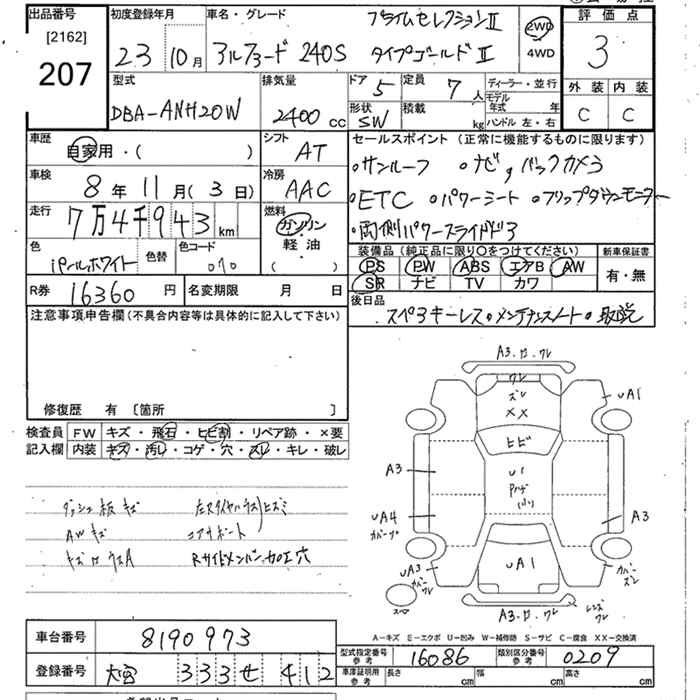 出品番号
[2162]
207
初度登録年月
23 10月
車名・グレード
プライムセレクションⅡ
アルファード 240S タイプゴールドⅡ
2WD
4WD
評価点
3
外装 内装
C C
型式
DBA-ANH20W
排気量
2400 cc
ドア 5
定員 7人
形状 SW
積載 kg
ディーラー・並行
モデル年式 年
ハンドル 左・右
車歴
自家用・( )
シフト
AT
車検
8年 11月 (3日)
冷房
AAC
走行
7万4千943 km
燃料
ガソリン
軽油
( )
色
パールホワイト
色替
色コード
070
R券 16360 円
名変期限 月 日
セールスポイント (正常に機能するものに限ります)
・サンルーフ ・ナビ,バックカメラ
・ETC ・パワーシート ・フリップダウンモニター
・両側パワースライドドア
装備品 (純正品に限り〇をつけてください)
PS PW ABS エアB AW
SR ナビ TV カワ
新車保証書
有・無
後日品
スペアキーレス・メンテナンスノート・取説
注意事項申告欄(不具合内容等は具体的に記入して下さい)
修復歴 有 〔箇所 〕
検査員記入欄
FW キズ・飛石・ヒビ割・リペア跡・×要
内装 キズ・汚レ・コゲ・穴・スレ・キレ・破レ
ダッシュ板キズ
AWキズ
コアサポート
Rサイドメンバー加工穴
A3.ロ.ワレ
ワレ
ズレ
XX
ヒビ
UA1
A3
U1
UA4
カバー
A3
UA3
カバーワレ
UA1
カバーズレ
A3.ロ.ワレ
レンズワレ
A-キズ E-エクボ U-凹み W-補修跡 S-サビ C-腐食 XX-交換済
車台番号
8190973
登録番号
大宮 333 せ 412
型式指定番号
参考
16086
類別区分番号
参考
0209
車庫証明用
参考
長さ cm
幅 cm
高さ cm